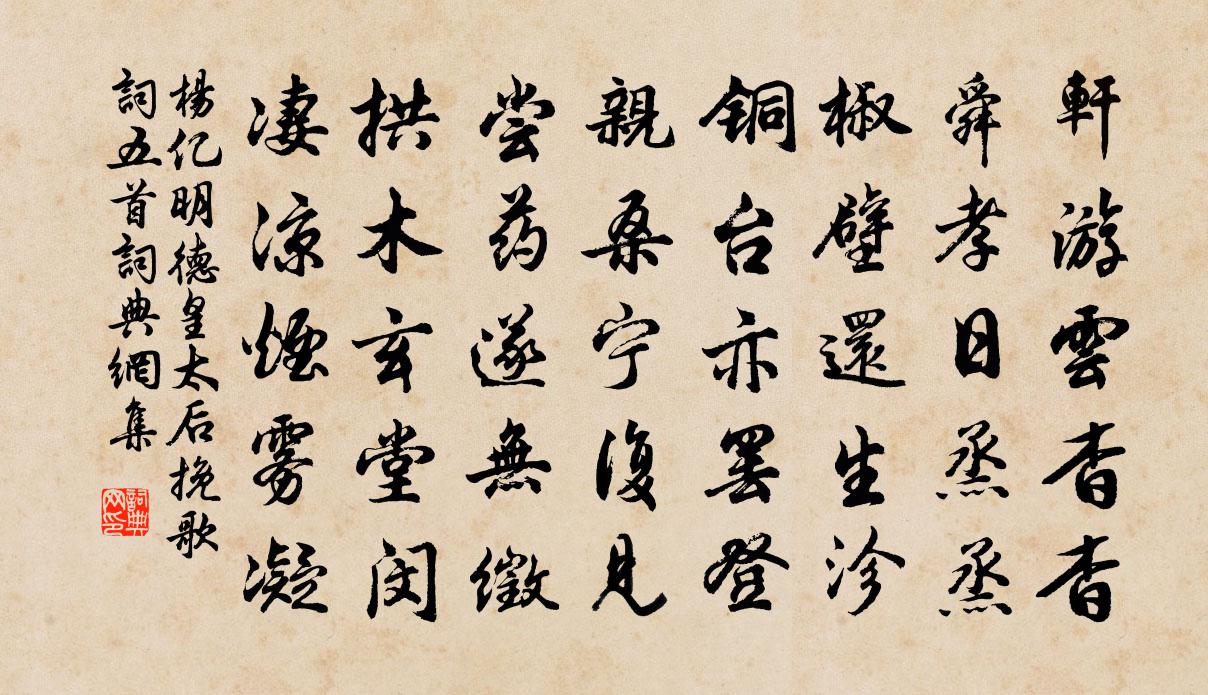 軒游雲杳杳
舜孝日烝烝
椒壁還生沴
銅台亦罷登
親桑宁復見
尝药遂無徵
拱木玄堂闵
凄涼煙雾凝
楊亿明德皇太后挽歌
詞五首詞典網集
詞典
网印